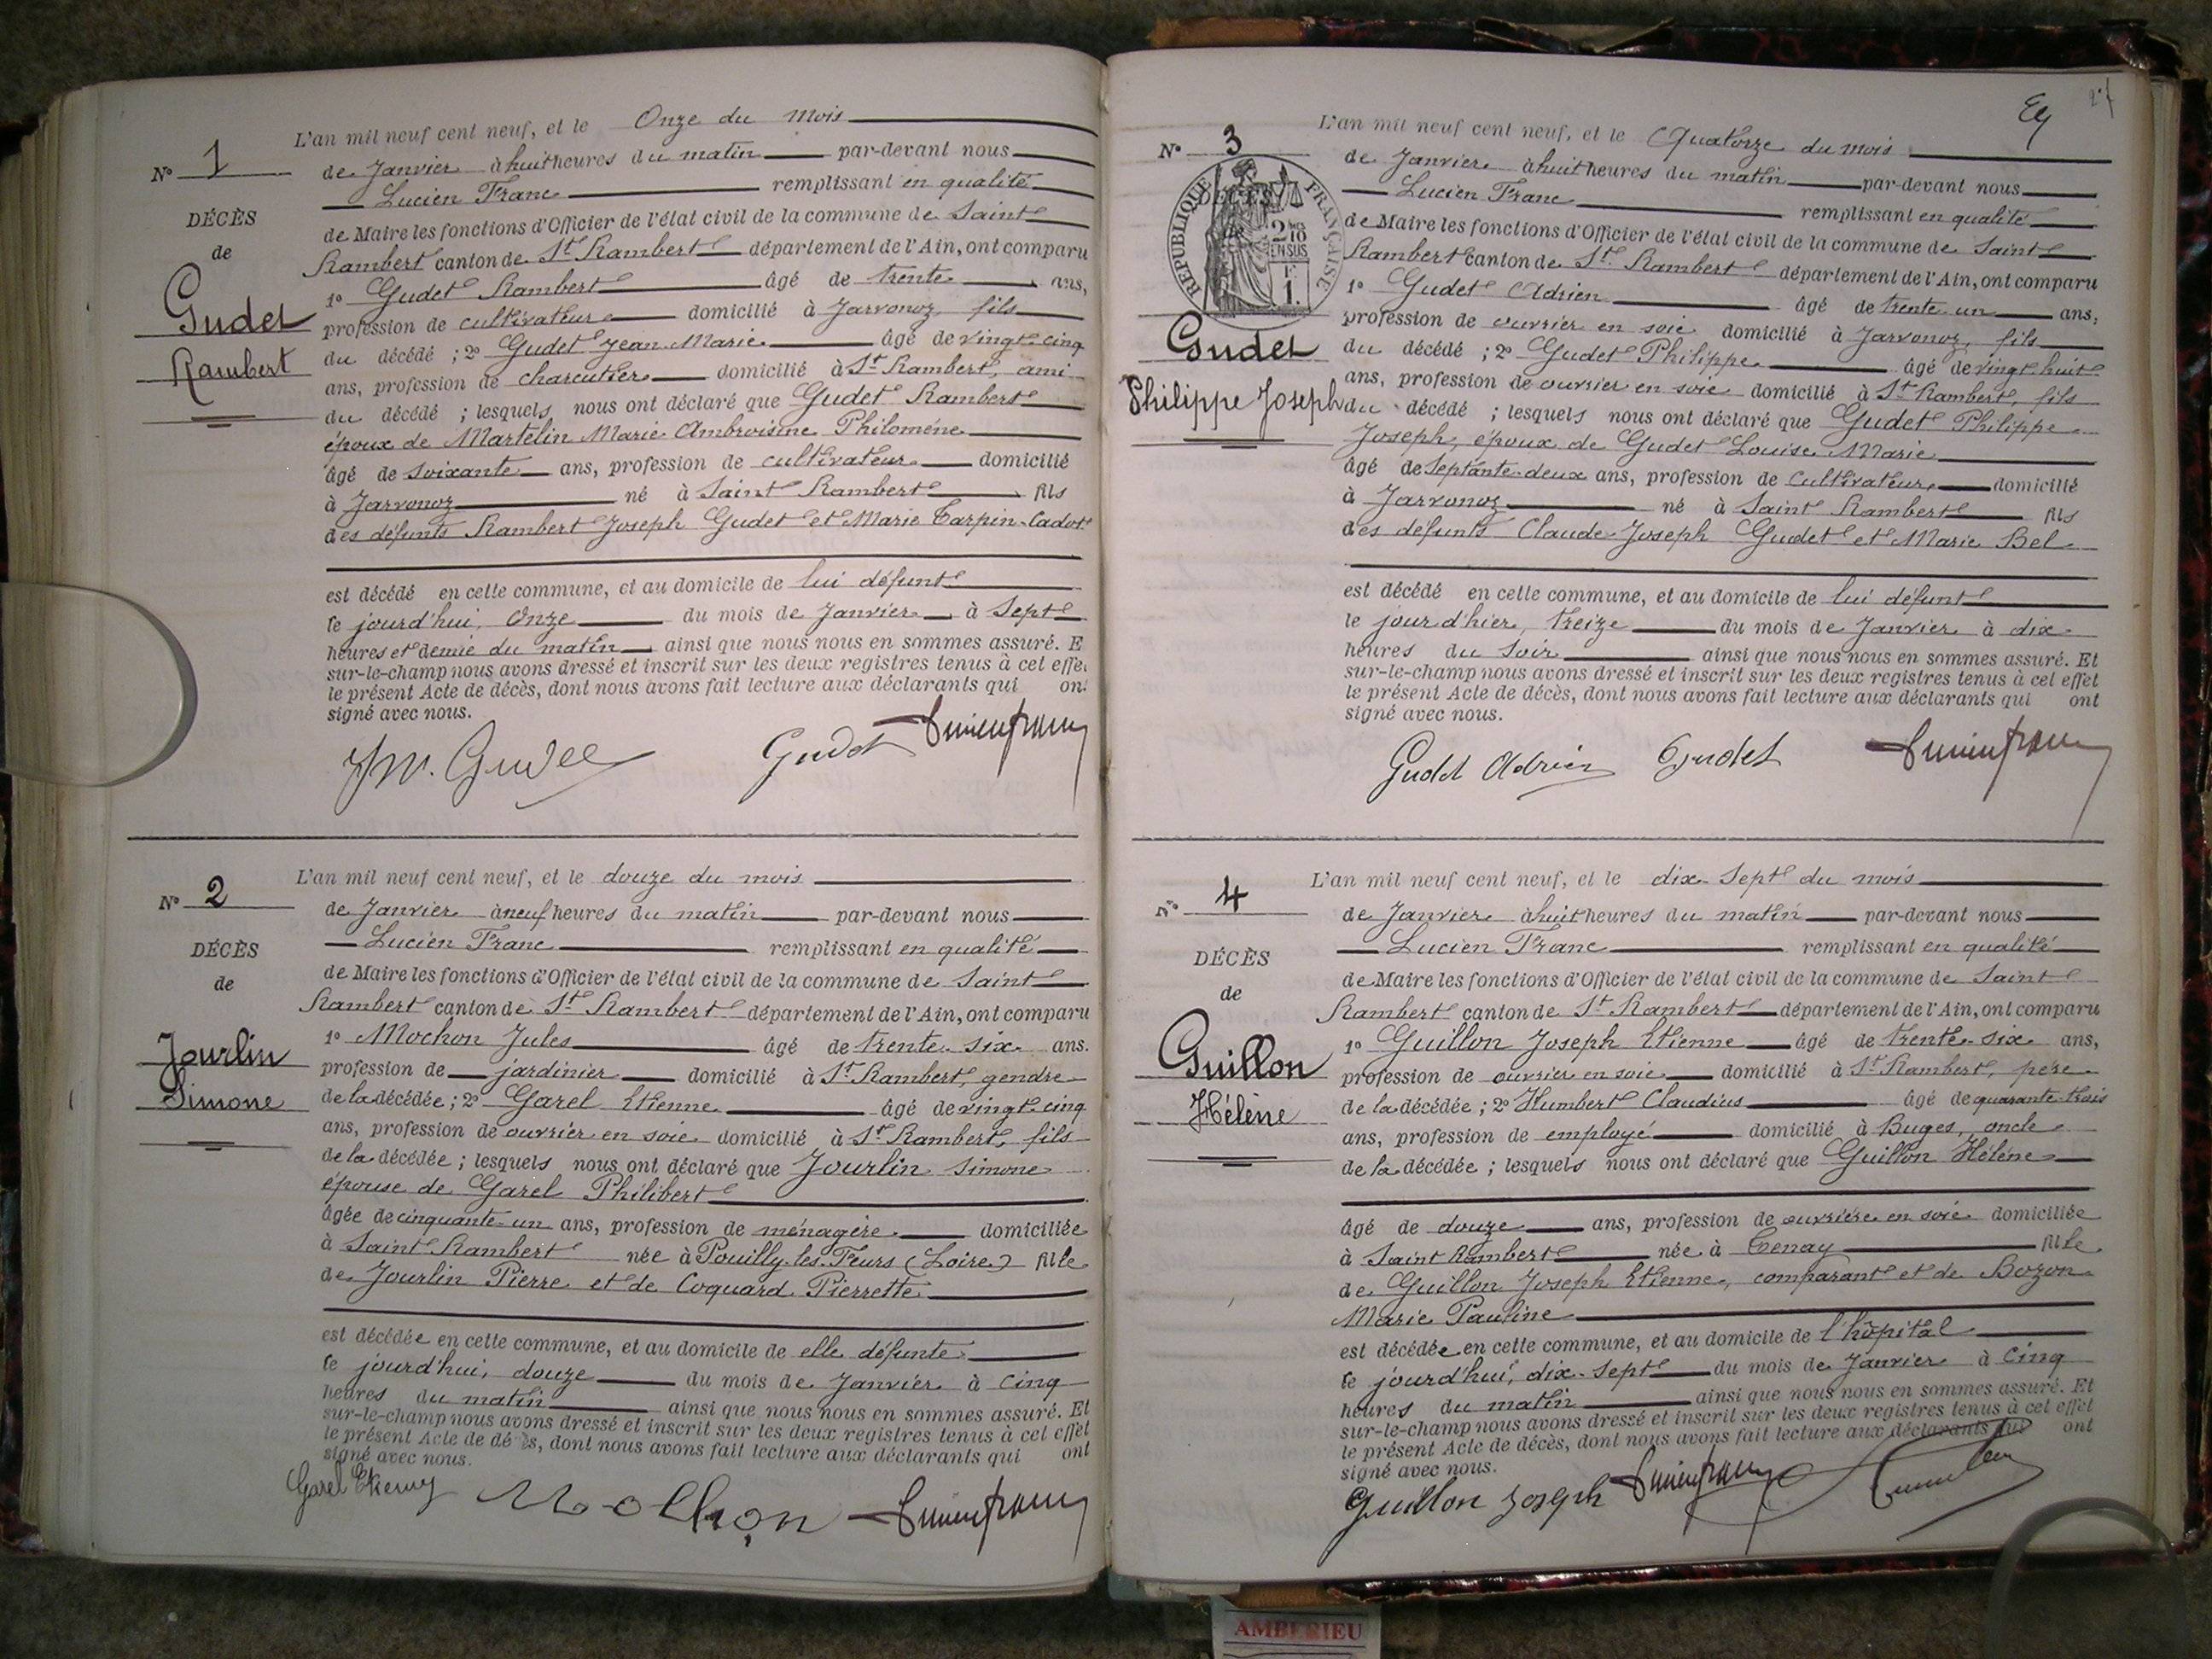 L'an mil neuf cent neuf, et le Onze du mois
N° 1
de Janvier à huit heures du matin par-devant nous
Lucien Franc remplissant en qualité
DÉCÈS
de Maire les fonctions d'Officier de l'état civil de la commune de Saint
de
Rambert canton de St Rambert département de l'Ain, ont comparu
1° Gudet Rambert âgé de trente ans,
Gudet
profession de cultivateur domicilié à Jarvonoz, fils
Rambert
du décédé ; 2° Gudet Jean Marie âgé de vingt-cinq
ans, profession de charcutier domicilié à St Rambert, ami
du décédé ; lesquels nous ont déclaré que Gudet Rambert
époux de Martelin Marie Ambroisine Philomène
âgé de soixante ans, profession de cultivateur domicilié
à Jarvonoz né à Saint Rambert fils
des défunts Rambert Joseph Gudet et Marie Tarpin-Cadot
est décédé en cette commune, et au domicile de lui défunt
le jourd'hui, Onze du mois de Janvier à Sept
heures et demie du matin ainsi que nous nous en sommes assuré. E
sur-le-champ nous avons dressé et inscrit sur les deux registres tenus à cet effe
le présent Acte de décès, dont nous avons fait lecture aux déclarants qui on
signé avec nous.
JM. Gudet Gudet Lucien Franc
L'an mil neuf cent neuf, et le douze du mois
N° 2
de Janvier à neuf heures du matin par-devant nous
Lucien Franc remplissant en qualité
DÉCÈS
de Maire les fonctions d'Officier de l'état civil de la commune de Saint
de
Rambert canton de St Rambert département de l'Ain, ont comparu
1° Mochon Jules âgé de trente-six ans.
Jourlin
profession de jardinier domicilié à St Rambert, gendre
Simone
de la décédée ; 2° Garel Etienne âgé de vingt-cinq
ans, profession de ouvrier en soie domicilié à St Rambert, fils
de la décédée ; lesquels nous ont déclaré que Jourlin Simone
épouse de Garel Philibert
âgée de cinquante-un ans, profession de ménagère domiciliée
à Saint Rambert née à Pouilly-les-Feurs (Loire) fille
de Jourlin Pierre et de Coquard Pierrette
est décédée en cette commune, et au domicile de elle défunte
le jourd'hui, douze du mois de Janvier à Cinq
heures du matin ainsi que nous nous en sommes assuré. Et
sur-le-champ nous avons dressé et inscrit sur les deux registres tenus à cet effet
le présent Acte de décès, dont nous avons fait lecture aux déclarants qui ont
signé avec nous.
Garel Etienne Mochon Lucien Franc
L'an mil neuf cent neuf, et le Quatorze du mois
N° 3
de Janvier à huit heures du matin par-devant nous
Lucien Franc remplissant en qualité
RÉPUBLIQUE FRANÇAISE
DÉCÈS
2/10 EN SUS
1 F.
de
de Maire les fonctions d'Officier de l'état civil de la commune de Saint
Rambert canton de St Rambert département de l'Ain, ont comparu
1° Gudet Adrien âgé de trente-un ans,
profession de ouvrier en soie domicilié à Jarvonoz, fils
Gudet
du décédé ; 2° Gudet Philippe âgé de vingt-huit
Philippe Joseph
ans, profession de ouvrier en soie domicilié à St Rambert, fils
du décédé ; lesquels nous ont déclaré que Gudet Philippe
Joseph, époux de Gudet Louise Marie
âgé de Septante-deux ans, profession de Cultivateur, domicilié
à Jarvonoz né à Saint Rambert fils
des défunts Claude-Joseph Gudet et Marie Bel
est décédé en cette commune, et au domicile de lui défunt
le jour d'hier, treize du mois de Janvier à dix
heures du soir ainsi que nous nous en sommes assuré. Et
sur-le-champ nous avons dressé et inscrit sur les deux registres tenus à cet effet
le présent Acte de décès, dont nous avons fait lecture aux déclarants qui ont
signé avec nous.
Gudet Adrien Gudet Lucien Franc
L'an mil neuf cent neuf, et le dix-Sept du mois
N° 4
de Janvier à huit heures du matin par-devant nous
Lucien Franc remplissant en qualité
DÉCÈS
de Maire les fonctions d'Officier de l'état civil de la commune de Saint
de
Rambert canton de St Rambert département de l'Ain, ont comparu
1° Guillon Joseph Etienne âgé de trente-six ans,
Guillon
profession de ouvrier en soie domicilié à St Rambert, père
Hélène
de la décédée ; 2° Humbert Claudius âgé de quarante-trois
ans, profession de employé domicilié à Buges, oncle
de la décédée ; lesquels nous ont déclaré que Guillon Hélène
âgé de douze ans, profession de ouvrière en soie domiciliée
à Saint Rambert née à Tenay fille
de Guillon Joseph Etienne, comparant et de Bozon
Marie Pauline
est décédée en cette commune, et au domicile de l'hôpital
le jourd'hui, dix-Sept du mois de Janvier à Cinq
heures du matin ainsi que nous nous en sommes assuré. Et
sur-le-champ nous avons dressé et inscrit sur les deux registres tenus à cet effet
le présent Acte de décès, dont nous avons fait lecture aux déclarants qui ont
signé avec nous.
Guillon Joseph Lucien Franc
AMBERIEU